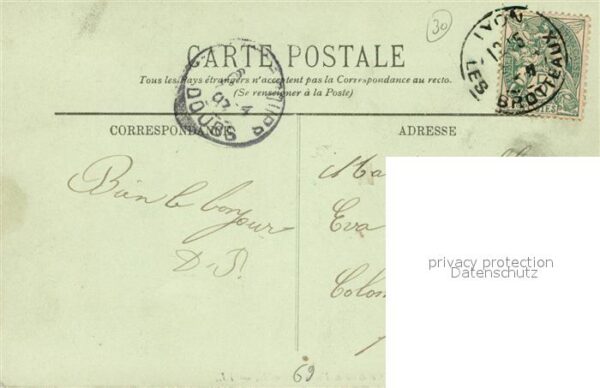 30
CARTE POSTALE
Tous les Pays étrangers n'acceptent pas la Correspondance au recto.
(Se renseigner à la Poste)
LYON
LES BROTTEAUX
DOUBS
CORRESPONDANCE
ADRESSE
Bien le bonjour
D. P.
Ma
Eva
Colom
privacy protection
Datenschutz
69